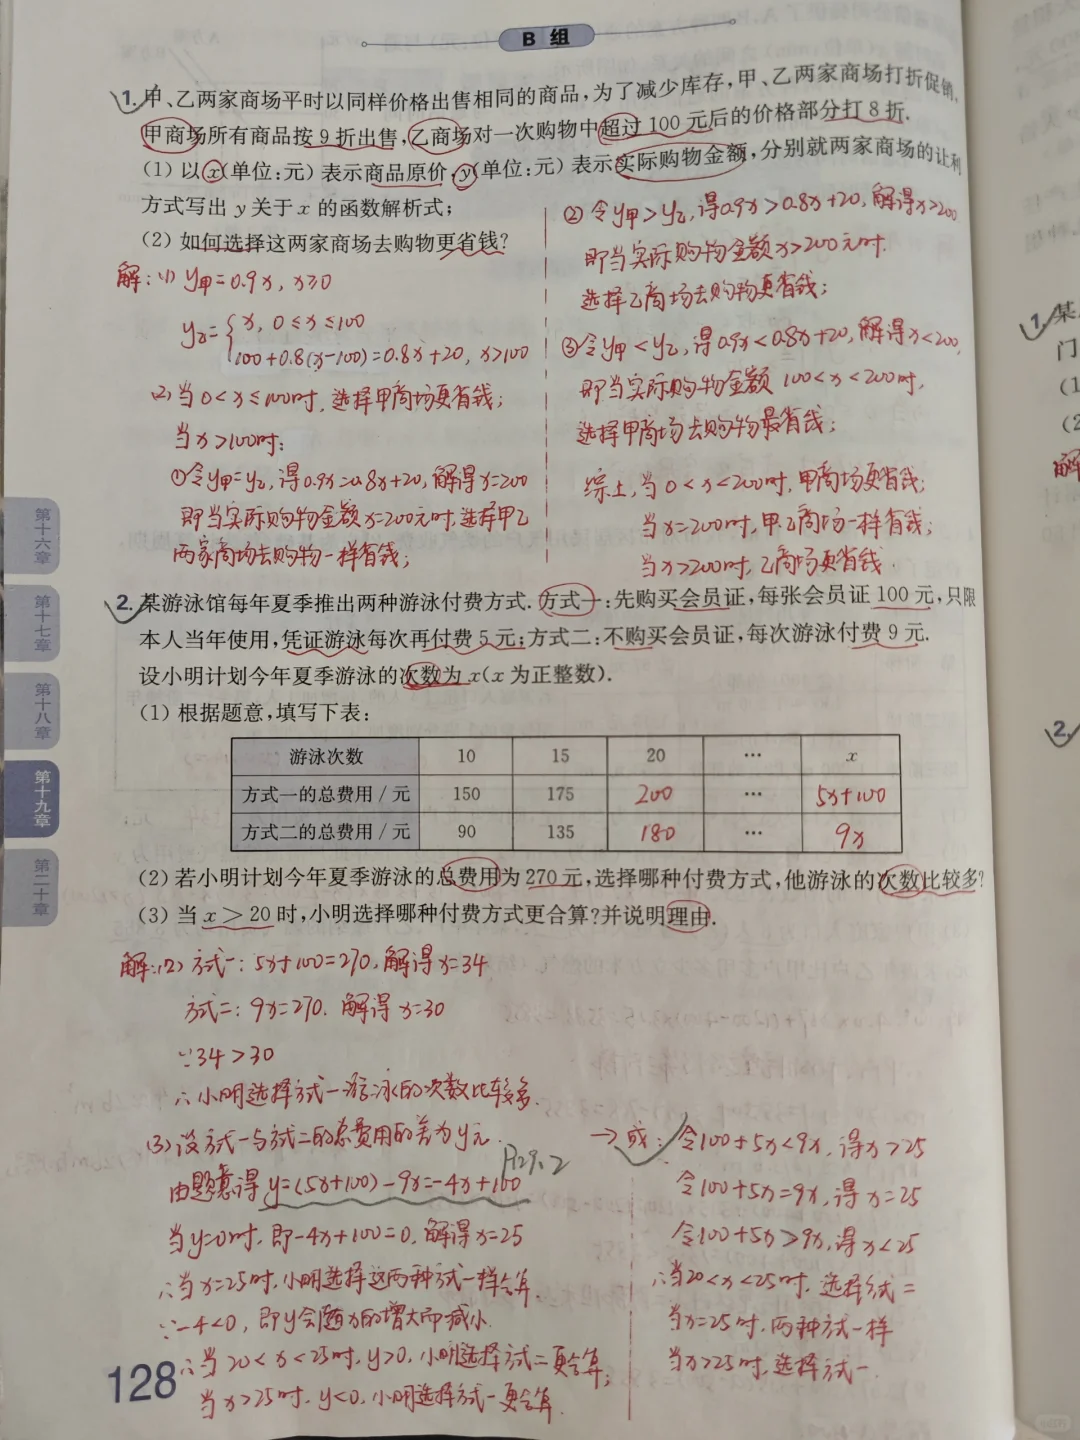 B 组
1. 甲、乙两家商场平时以同样价格出售相同的商品，为了减少库存，甲、乙两家商场打折促销，
甲商场所有商品按 9 折出售，乙商场对一次购物中超过 100 元后的价格部分打 8 折.
(1) 以 x(单位:元) 表示商品原价，y(单位:元) 表示实际购物金额，分别就两家商场的让利
方式写出 y 关于 x 的函数解析式;
(2) 如何选择这两家商场去购物更省钱?
解：(1) y甲=0.9x, x≥0
y乙={x, 0≤x≤100
100+0.8(x-100)=0.8x+20, x>100
(2) 当0<x≤100时, 选择甲商场更省钱;
当x>100时:
①令y甲=y乙, 得0.9x=0.8x+20, 解得x=200
即当实际购物金额x=200元时, 选择甲乙
两家商场去购物一样省钱;
②令y甲>y乙, 得0.9x>0.8x+20, 解得x>200
即当实际购物金额x>200元时.
选择乙商场去购物更省钱;
③令y甲<y乙, 得0.9x<0.8x+20, 解得x<200,
即当实际购物金额 100<x<200时,
选择甲商场去购物最省钱;
综上, 当0<x<200时, 甲商场更省钱;
当x=200时, 甲.乙商场一样省钱;
当x>200时, 乙商场更省钱.
2. 某游泳馆每年夏季推出两种游泳付费方式. 方式一:先购买会员证，每张会员证 100 元，只限
本人当年使用，凭证游泳每次再付费 5 元;方式二:不购买会员证，每次游泳付费 9 元.
设小明计划今年夏季游泳的次数为 x(x 为正整数).
(1) 根据题意，填写下表:
游泳次数 10 15 20 … x
方式一的总费用/元 150 175 200 … 5x+100
方式二的总费用/元 90 135 180 … 9x
(2) 若小明计划今年夏季游泳的总费用为 270 元，选择哪种付费方式，他游泳的次数比较多?
(3) 当 x＞20 时，小明选择哪种付费方式更合算?并说明理由.
解：(2) 方式一: 5x+100=270, 解得x=34
方式二: 9x=270. 解得x=30
∵34>30
∴小明选择方式一游泳的次数比较多.
(3) 设方式一与方式二的总费用的差为y元.
P129.2
由题意得 y=(5x+100)-9x=-4x+100
当y=0时, 即-4x+100=0, 解得x=25
∴当x=25时, 小明选择这两种方式一样合算.
∵-4<0, 即y会随x的增大而减小.
∴当20<x<25时, y>0, 小明选择方式二更合算;
当x>25时, y<0, 小明选择方式一更合算.
→或: 令100+5x<9x, 得x>25
令100+5x=9x, 得x=25
令100+5x>9x, 得x<25
∴当20<x<25时, 选择方式二
当x=25时, 两种方式一样
当x>25时, 选择方式一.
128
第十六章
第十七章
第十八章
第十九章
第二十章
1. 某
门
(1
(2
解
2.